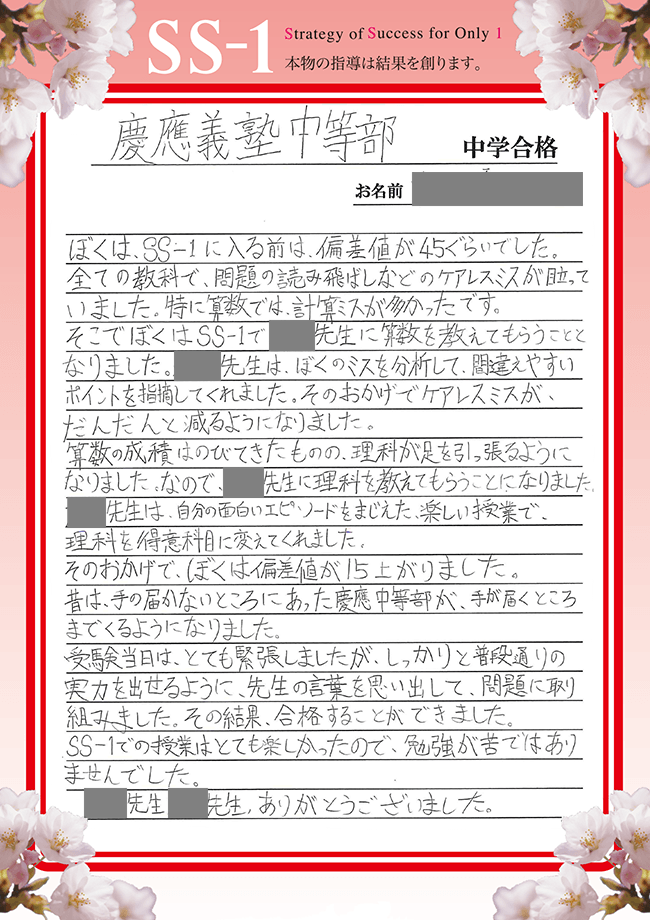 SS-1 Strategy of Success for Only 1
本物の指導は結果を創ります。
慶應義塾中等部 中学合格
お名前
ぼくは、SS-1に入る前は、偏差値が45ぐらいでした。
全ての教科で、問題の読み飛ばしなどのケアレスミスが目立って
いました。特に算数では、計算ミスが多かったです。
そこでぼくはSS-1で 先生に算数を教えてもらうことと
なりました。 先生は、ぼくのミスを分析して、間違えやすい
ポイントを指摘してくれました。そのおかげでケアレスミスが、
だんだんと減るようになりました。
算数の成積はのびてきたものの、理科が足を引っ張るように
なりました。なので、 先生に理科を教えてもらうことになりました。
先生は、自分の面白いエピソードをまじえた、楽しい授業で、
理科を得意科目に変えてくれました。
そのおかげで、ぼくは偏差値が15上がりました。
昔は、手の届かないところにあった慶應中等部が、手が届くところ
までくるようになりました。
受験当日は、とても緊張しましたが、しっかりと普段通りの
実力を出せるように、先生の言葉を思い出して、問題に取り
組みました。その結果、合格することができました。
SS-1での授業はとても楽しかったので、勉強が苦ではあり
ませんでした。
先生 先生、ありがとうございました。